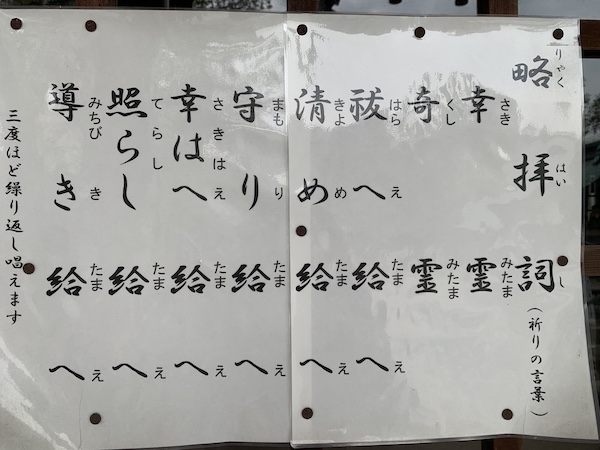 略拝詞（祈りの言葉）
りゃくはいし
幸霊
さきみたま
奇霊
くしみたま
祓へ給へ
はらえたまえ
清め給へ
きよめたまえ
守り給へ
まもりたまえ
幸はへ給へ
さきはえたまえ
照らし給へ
てらしたまえ
導き給へ
みちびきたまえ
三度ほど繰り返し唱えます